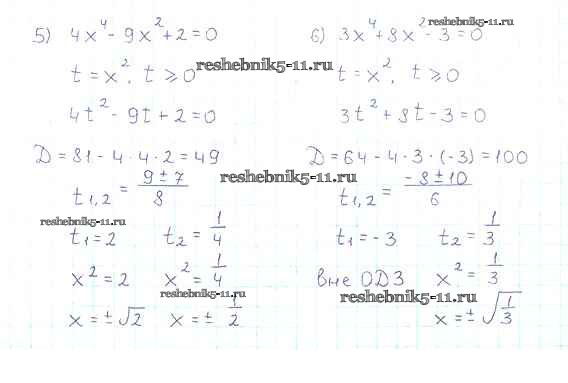 5) 4x⁴ - 9x² + 2 = 0
t = x², t ⩾ 0
4t² - 9t + 2 = 0
D = 81 - 4 · 4 · 2 = 49
t₁,₂ = (9 ± 7)/8
t₁ = 2 t₂ = 1/4
x² = 2 x² = 1/4
x = ± √2 x = ± 1/2
6) 3x⁴ + 8x² - 3 = 0
t = x², t ⩾ 0
3t² + 8t - 3 = 0
D = 64 - 4 · 3 · (-3) = 100
t₁,₂ = (-8 ± 10)/6
t₁ = -3 t₂ = 1/3
вне ОДЗ x² = 1/3
x = ± √(1/3)
reshebnik5-11.ru
reshebnik5-11.ru
reshebnik5-11.ru
reshebnik5-11.ru
reshebnik5-11.ru
reshebnik5-11.ru